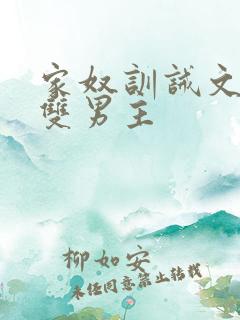 家奴訓誡文
雙男主
柳如安
未經同意禁止轉載